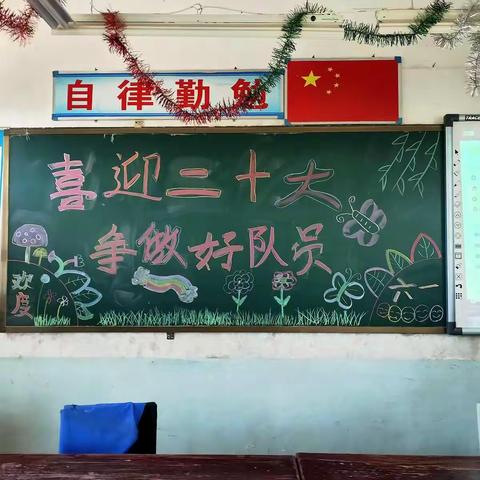 自律勤勉
喜迎二十大
争做好队员
欢度
六一